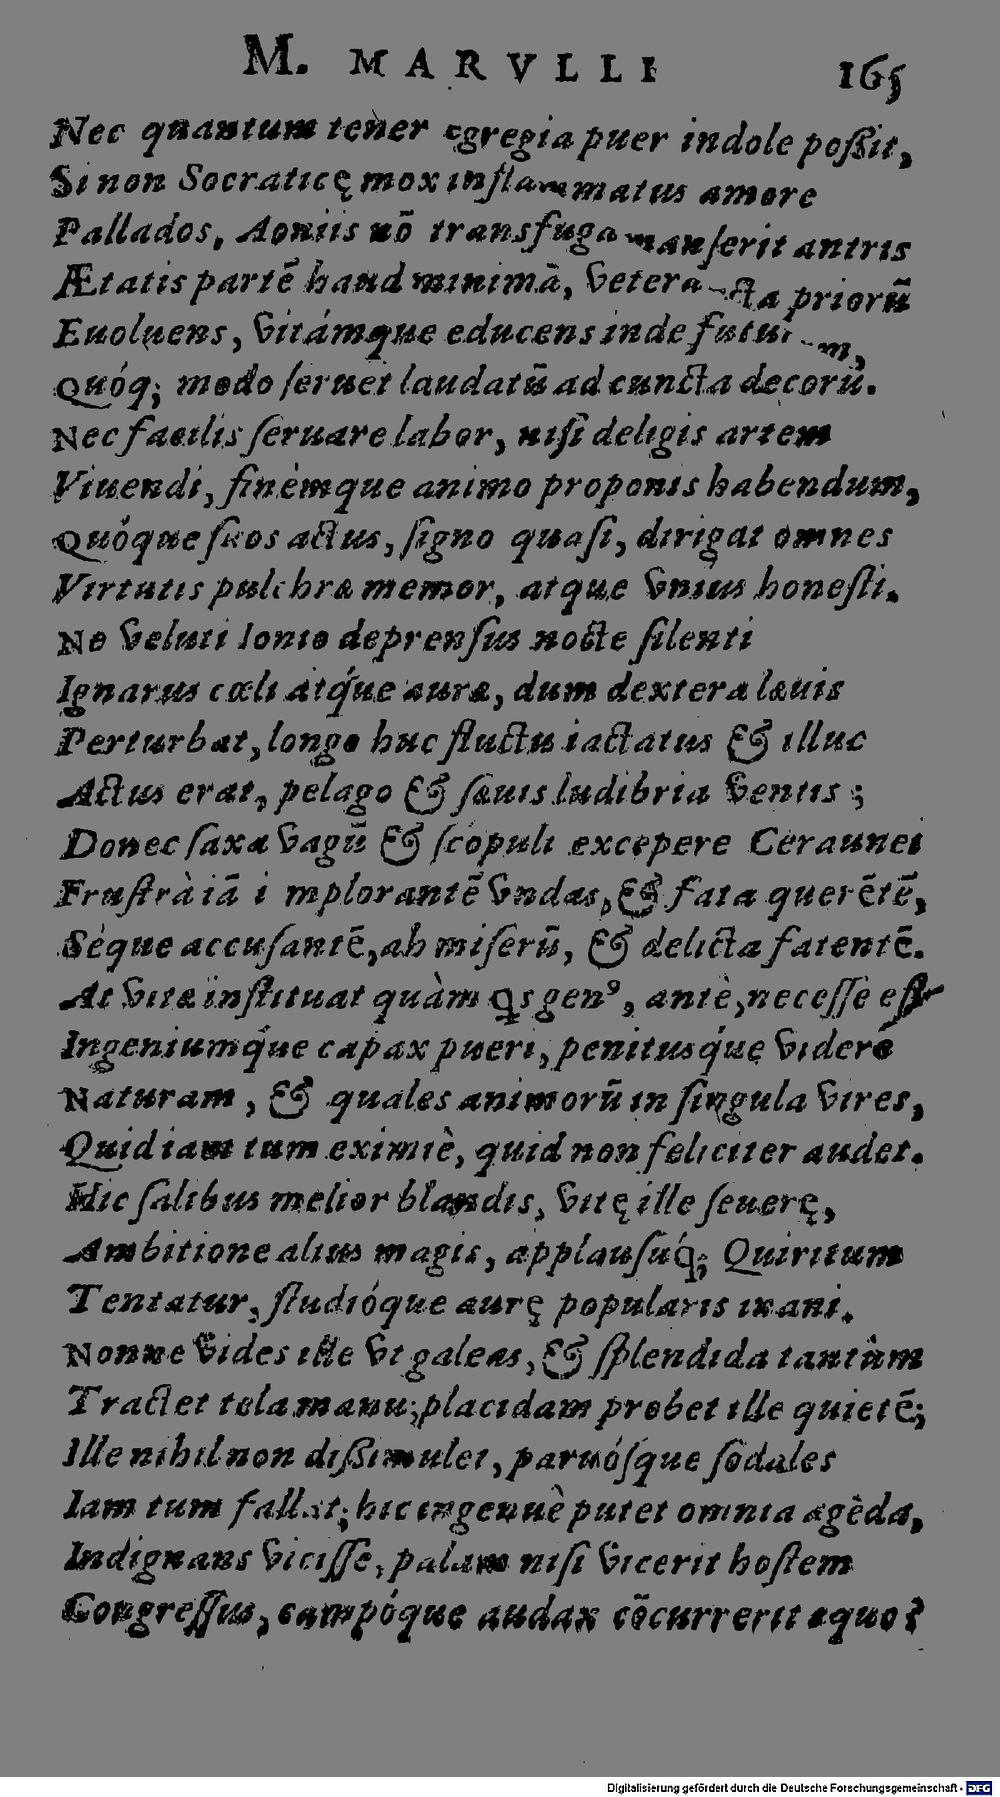 M. MARVLLI 165
Nec quantum tener egregia puer indole poßit,
Si non Socraticę mox inflammatus amore
Pallados, Aoniis nō transfuga manserit antris
Ætatis partē haud minimā, veterā priorū
Euoluens, vitámque educens inde
Quóq; modo seruet laudatū ad cuncta decorū.
Nec facilis seruare labor, nisi deligis artem
Viuendi, finèmque animo proponis habendum,
Quóque suos actus, signo quasi, dirigat omnes
Virtutis pulchræ memor, atque vnius honesti.
Ne veluti Ionio deprensus nocte silenti
Ignarus cœli atq́ue auræ, dum dextera læuis
Perturbat, longo huc fluctu iactatus & illuc
Actus erat, pelago & sæuis ludibria ventis;
Donec saxa vagū & scopuli excepere Ceraunei
Frustrà iā i mplorantē vndas, & fata querētē,
Séque accusantē, ah miserū, & delicta fatentē.
At vitæ instituat quàm q̱s genꝰ, antè, necesse est
Ingeniumq́ue capax pueri, penitusq́ue videre
Naturam, & quales animorū in singula vires,
Quid iam tum eximiè, quid non feliciter audet.
Hic salibus melior blandis, vitę ille seuerę,
Ambitione alius magis, applausuq́; Quiritum
Tentatur, studióque aurę popularis inani.
Nonne vides ille vt galeas, & splendida tantùm
Tractet tela manu; placidam probet ille quietē;
Ille nihil non dißimulet, paruósque sodales
Iam tum fallat; hic ingenuè putet omnia agēda,
Indignans vicisse, palam nisi vicerit hostem
Congressus, campóque audax cōcurrerit æquo?
Digitalisierung gefördert durch die Deutsche Forschungsgemeinschaft - DFG